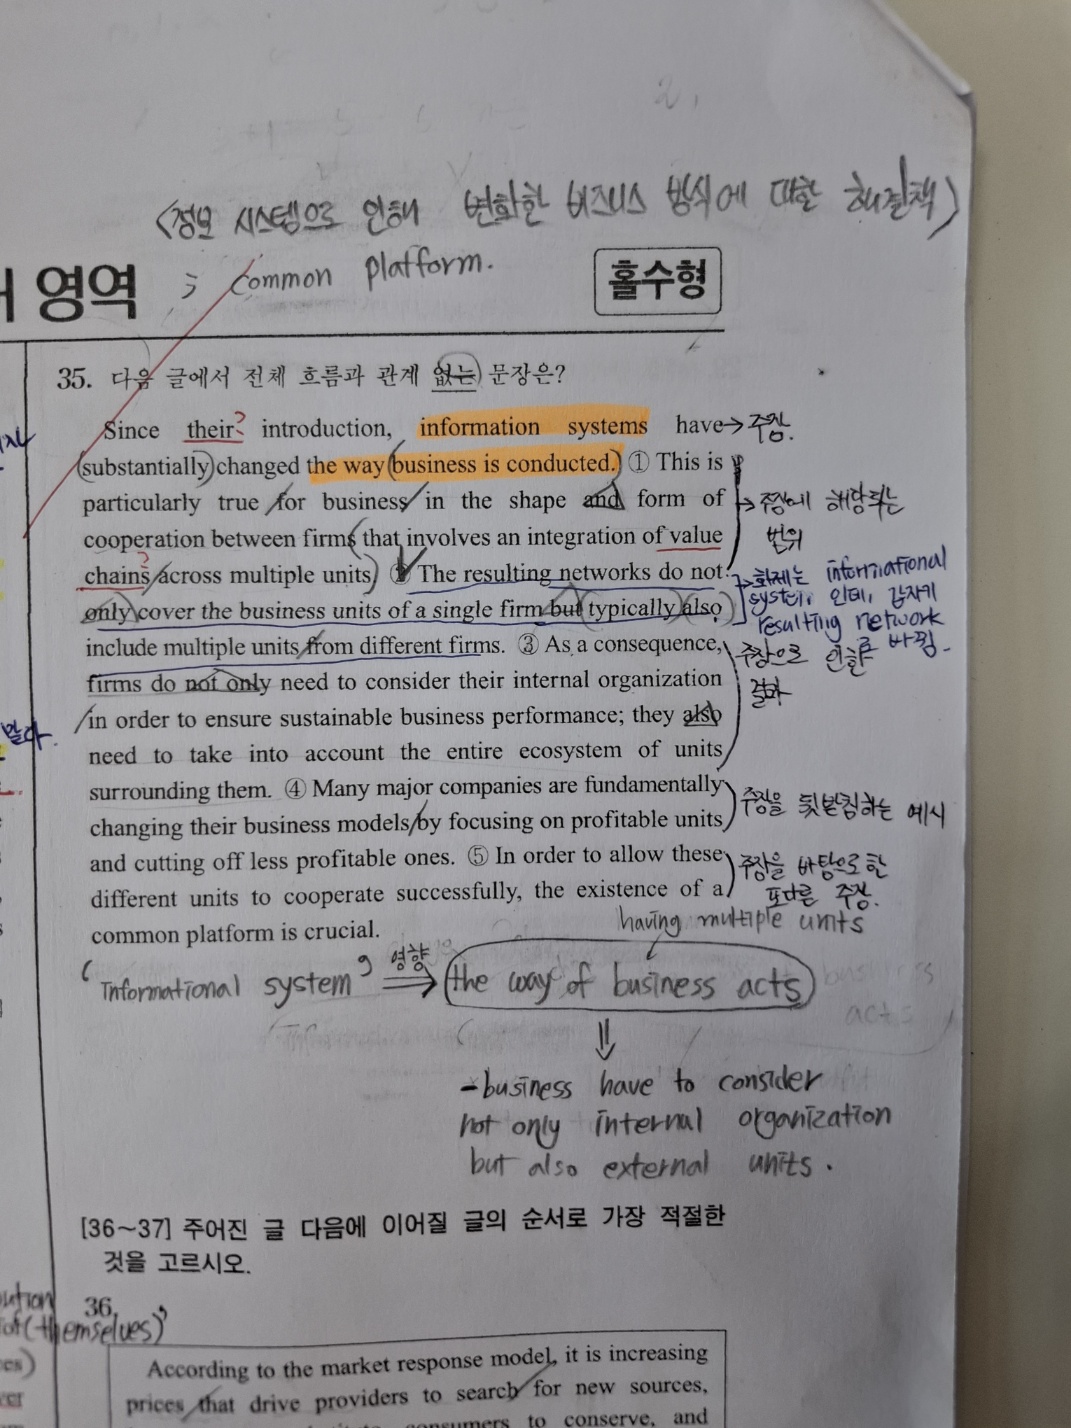 <정보 시스템으로 인해 변화한 비즈니스 방식에 대한 해결책>
; common platform.
영역
홀수형
35. 다음 글에서 전체 흐름과 관계 없는 문장은?
Since their? introduction, information systems have → 주장.
(substantially) changed the way (business is conducted.) ① This is
particularly true for business in the shape and form of
→ 주장에 해당되는
범위
cooperation between firms (that involves an integration of value
chains? across multiple units) ② The resulting networks do not
only cover the business units of a single firm but (typically) (also)
include multiple units from different firms. ③ As a consequence,
화제는 informational
system 인데, 갑자기
resulting network
로 바뀜.
firms do not only need to consider their internal organization
in order to ensure sustainable business performance; they also
need to take into account the entire ecosystem of units
surrounding them. ④ Many major companies are fundamentally
주장으로 인한
결과
changing their business models by focusing on profitable units
and cutting off less profitable ones. ⑤ In order to allow these
주장을 뒷받침하는 예시
different units to cooperate successfully, the existence of a
common platform is crucial.
주장을 바탕으로 한
또다른 주장.
having multiple units
'Informational system' 영향 ⇒ the way of business acts
business
acts
⇓
-business have to consider
not only internal organization
but also external units.
[36～37] 주어진 글 다음에 이어질 글의 순서로 가장 적절한
것을 고르시오.
36.
(themselves)
According to the market response model, it is increasing
prices that drive providers to search for new sources,
consumers to conserve, and